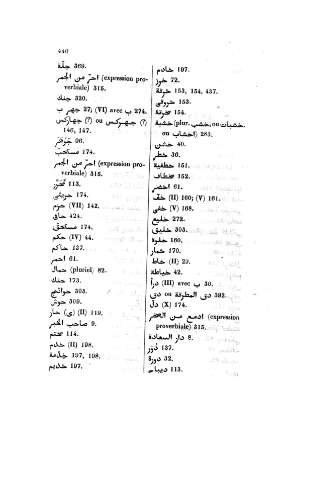 440
جلّة 369.
احرّ من الجمر (expression pro-
verbiale) 315.
جنك 320.
جهر ب 27; (VI) avec ب 274.
جهاركس ou (?) جهركس (?)
146, 147.
جوز 96.
مستحب 174.
احرّ من الجمر (expression pro-
verbiale) 315.
113.
حرمتى 174.
حزم (VII) 142.
حافى 424.
مستحق 174.
حكم (IV) 44.
حاكم 137.
احمر 61.
حمال (pluriel) 82.
حنك 173.
حوائج 303.
حوش 309.
حار (ى) (II) 119.
صاحب الخبر 9.
مختم 114.
خدم (II) 198.
خدمة 197, 198.
خديم 197.
خادم 197.
خرز 72.
خرقة 153, 154, 437.
خروقى 153.
154.
خشبة (plur. خشب, ou خشبات
ou اخشاب) 283.
خشن 40.
خطر 36.
خطفية 151.
خطاف 152.
اخضر 61.
خفّ (II) 160; (V) 161.
خفى (V) 168.
خليع 272.
خليق 303.
خلوة 160.
خمار 170.
خاط (II) 29.
خياطة 42.
درأ (III) avec ب 30.
دى ou دى المطرقة 392.
دلّ (X) 174.
ادمع من (expression
proverbiale) 315.
دار السعادة 8.
دور 137.
دورة 32.
ديباج 113.